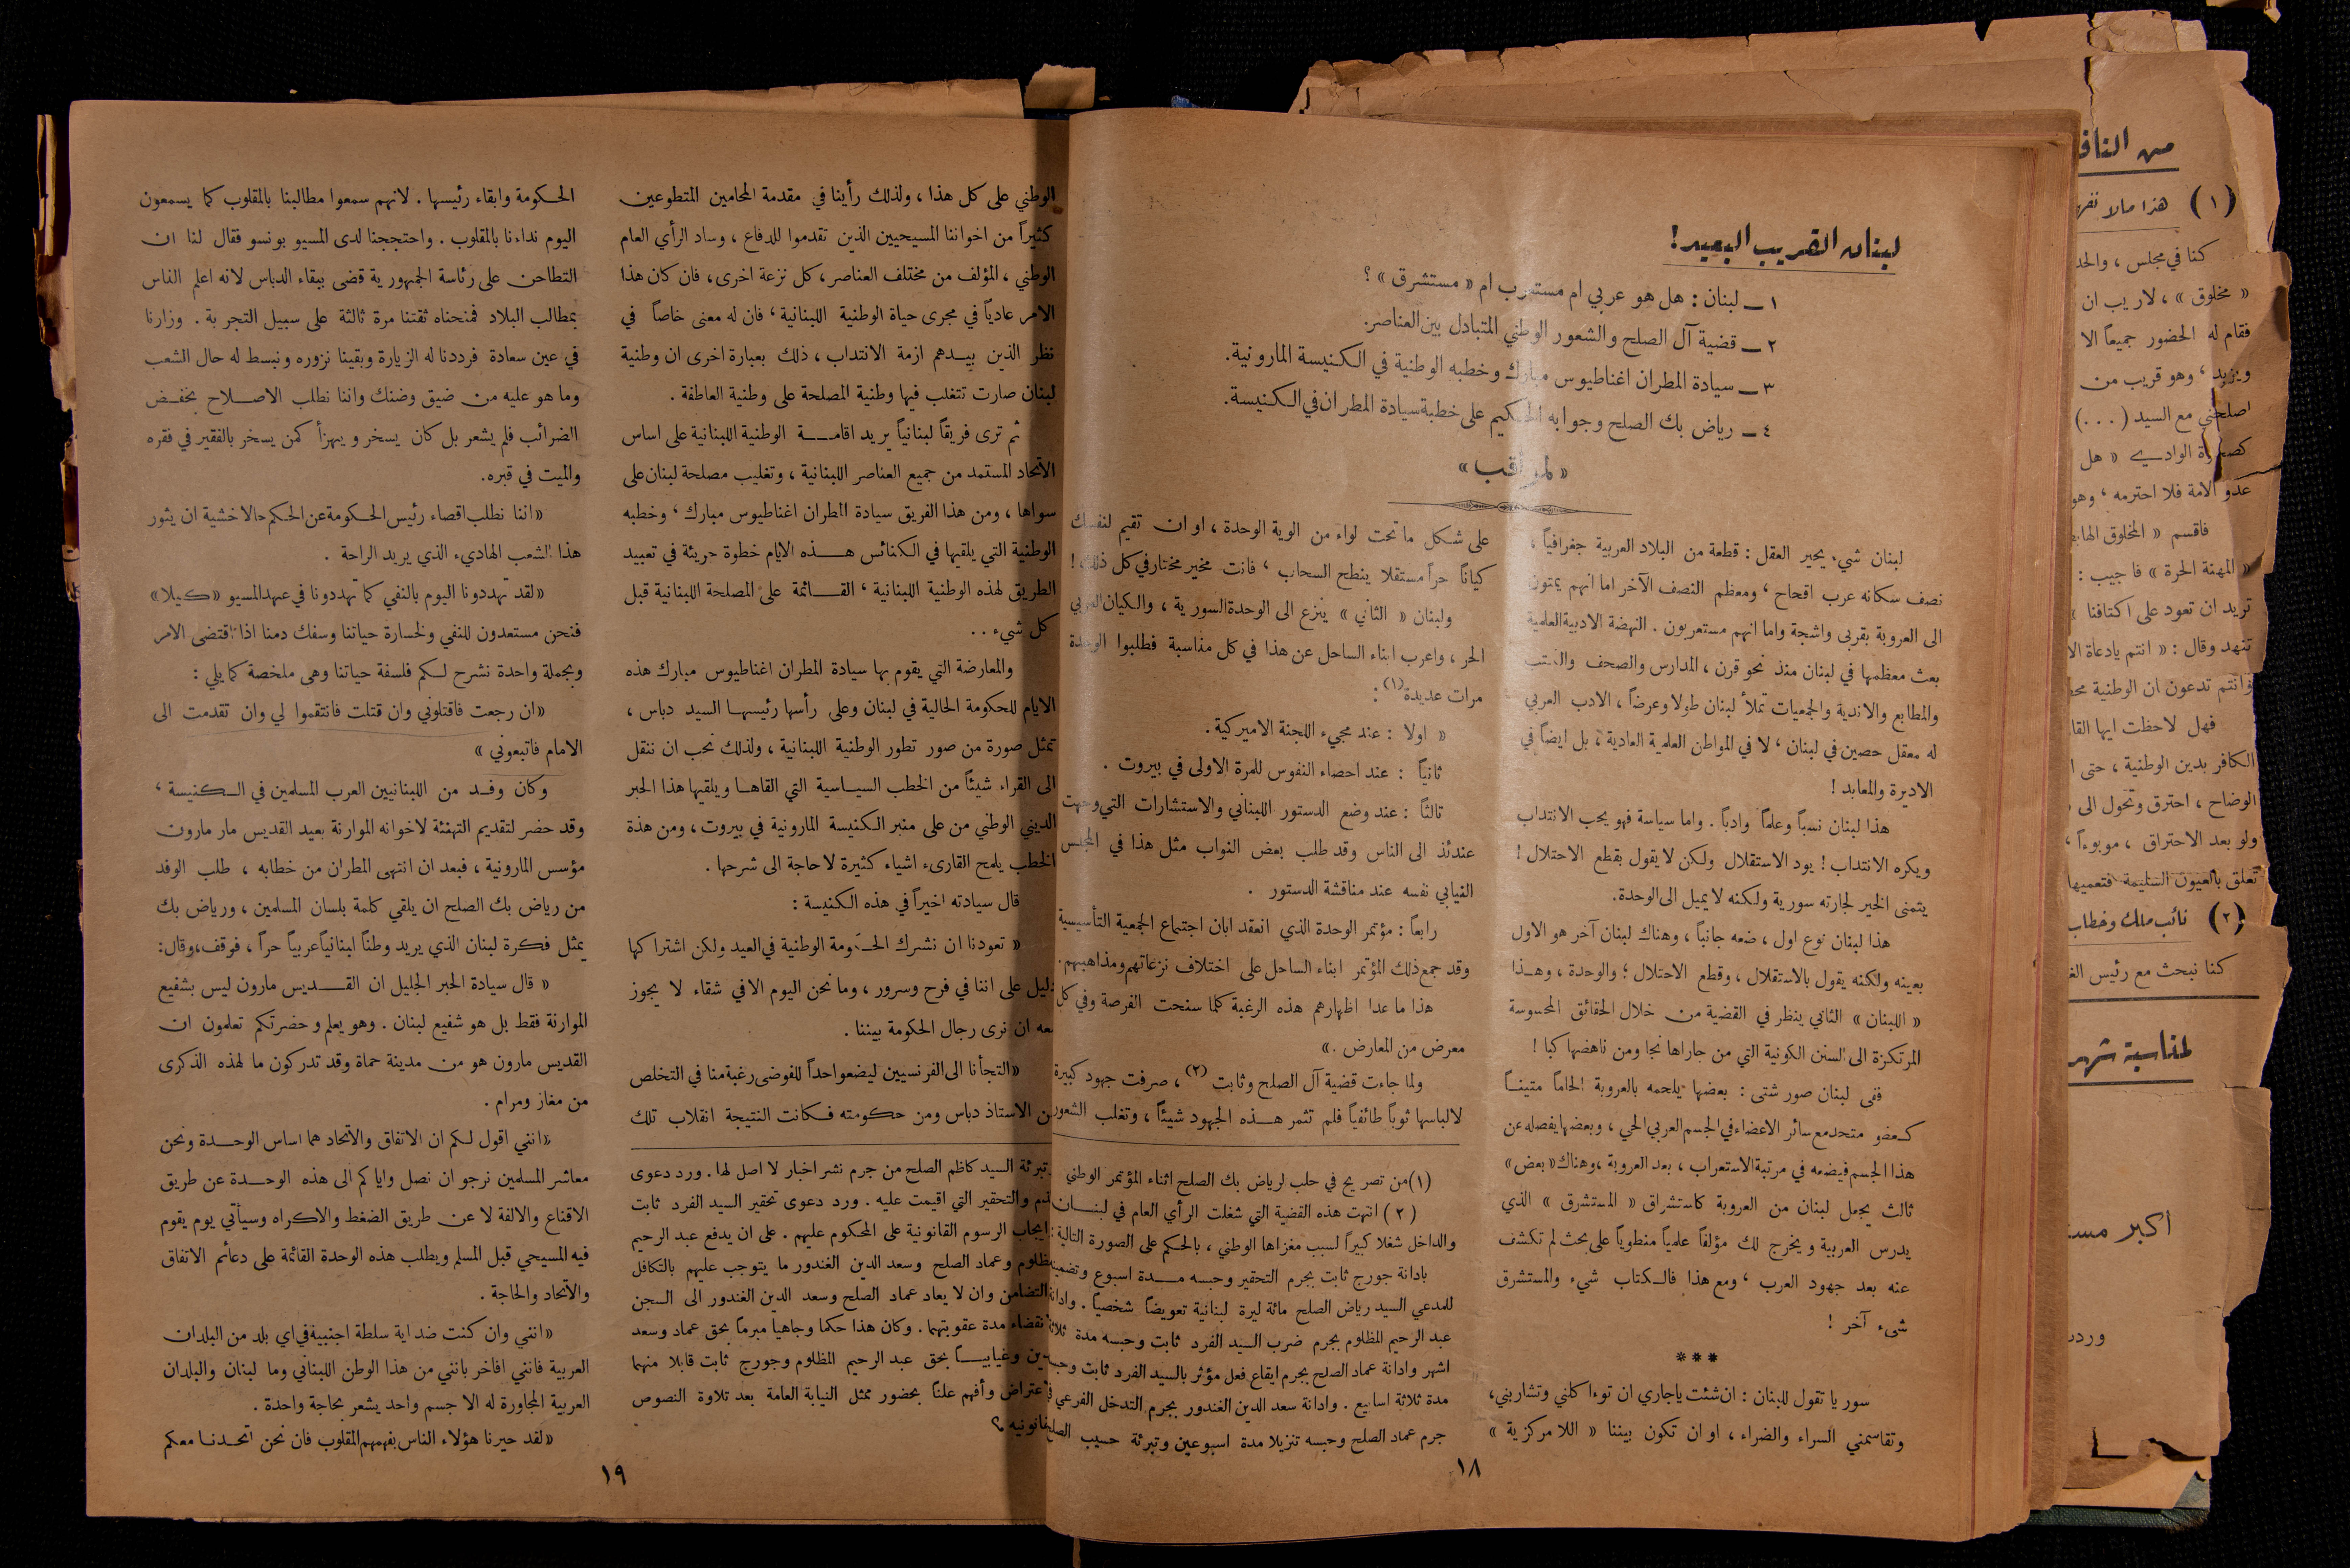 لبنان القريب البعيد!
١ ـ لبنان : هل هو عربي ام مستعرب ام « مستشرق » ؟
٢ ـ قضية آل الصلح والشعور الوطني المتبادل بين العناصر.
٣ ـ سيادة المطران اغناطيوس مبارك وخطبه الوطنية في الكنيسة المارونية.
٤ ـ رياض بك الصلح وجوابه الحكيم على خطبة سيادة المطران في الكنيسة.
« لمراقب »
لبنان شيء يحير العقل : قطعة من البلاد العربية جغرافياً ،
نصف سكانه عرب اقحاح ، ومعظم النصف الآخر اما انهم يمتون
الى العروبة بقربى واشجة واما انهم مستعربون . النهضة الادبية العلمية
بعث معظمها في لبنان منذ نحو قرن ، المدارس والصحف والكتب
والمطابع والاندية والجمعيات تملأ لبنان طولا وعرضاً ، الادب العربي
له معقل حصين في لبنان ، لا في المواطن العلمية العادية ، بل ايضاً في
الاديرة والمعابد !
هذا لبنان نسباً وعلماً وادباً . واما سياسة فهو يحب الانتداب
ويكره الانتداب ! يود الاستقلال ولكن لا يقول بقطع الاحتلال !
يتمنى الخير لجارته سورية ولكنه لا يميل الى الوحدة.
هذا لبنان نوع اول ، ضعه جانباً ، وهناك لبنان آخر هو الاول
بعينه ولكنه يقول بالاستقلال ، وقطع الاحتلال ؛ والوحدة ، وهـذا
« اللبنان » الثاني ينظر في القضية من خلال الحقائق المحسوسة
المرتكزة الى السنن الكونية التي من جاراها نجا ومن ناهضها كبا !
ففي لبنان صور شتى : بعضها يلحمه بالعروبة الحاماً متينـاً
كعضو متحد مع سائر الاعضاء في الجسم العربي الحي ، وبعضها يفصله عن
هذا الجسم فيضعه في مرتبة الاستعراب ، بعد العروبة ، وهناك « بعض »
ثالث يجعل لبنان من العروبة كاستشراق « المستشرق » الذي
يدرس العربية ويخرج لك مؤلفاً علمياً منطوياً على بحث لم تكشف
عنه بعد جهود العرب ، ومع هذا فالكتاب شيء والمستشرق
شيء آخر !
***
سوريا تقول للبنان : ان شئت ياجاري ان تؤاكلني وتشاربني ،
وتقاسمني السراء والضراء ، او ان تكون بيننا « اللامركزية »
على شكل ما تحت لواء من الوية الوحدة ، او ان تقيم لنفسك
كياناً حراً مستقلا ينطح السحاب ، فانت مخير مختار في كل ذلك !
ولبنان « الثاني » ينزع الى الوحدة السورية ، والكيان العربي
الحر ، واعرب ابناء الساحل عن هذا في كل مناسبة فطلبوا الوحدة
مرات عديدة (١) :
« اولا : عند مجيء اللجنة الاميركية .
ثانياً : عند احصاء النفوس للمرة الاولى في بيروت .
ثالثاً : عند وضع الدستور اللبناني والاستشارات التي وجهت
عندئذ الى الناس وقد طلب بعض النواب مثل هذا في المجلس
النيابي نفسه عند مناقشة الدستور .
رابعاً : مؤتمر الوحدة الذي انعقد ابان اجتماع الجمعية التأسيسية
وقد جمع ذلك المؤتمر ابناء الساحل على اختلاف نزعاتهم ومذاهبهم .
هذا ما عدا اظهارهم هذه الرغبة كلما سنحت الفرصة وفي كل
معرض من المعارض .»
ولما جاءت قضية آل الصلح وثابت (٢) ، صرفت جهود كبيرة
لالباسها ثوباً طائفياً فلم تثمر هـذه الجهود شيئاً ، وتغلب الشعور
(١) من تصريح في حلب لرياض بك الصلح اثناء المؤتمر الوطني
( ٢ ) انتهت هذه القضية التي شغلت الرأي العام في لبنـان
والداخل شغلا كبيراً لسبب مغزاها الوطني ، بالحكم على الصورة التالية :
بادانة جورج ثابت بجرم التحقير وحبسه مـدة اسبوع وتضمينه
للمدعي السيد رياض الصلح مائة ليرة لبنانية تعويضاً شخصياً . وادانة
عبد الرحيم المظلوم بجرم ضرب السيد الفرد ثابت وحبسه مدة ثلاثة
اشهر وادانة عماد الصلح بجرم ايقاع فعل مؤثر بالسيد الفرد ثابت وحبسه
مدة ثلاثة اسابيع . وادانة سعد الدين الغندور بجرم التدخل الفرعي في
جرم عماد الصلح وحبسه تنزيلا مدة اسبوعين وتبرئة حسيب الصلح
١٨
الوطني على كل هذا ، ولذلك رأينا في مقدمة المحامين المتطوعين
كثيراً من اخواننا المسيحيين الذين تقدموا للدفاع ، وساد الرأي العام
الوطني ، المؤلف من مختلف العناصر ، كل نزعة اخرى ، فان كان هذا
الامر عادياً في مجرى حياة الوطنية اللبنانية ، فان له معنى خاصاً في
نظر الذين بيـدهم ازمة الانتداب ، ذلك بعبارة اخرى ان وطنية
لبنان صارت تتغلب فيها وطنية المصلحة على وطنية العاطفة .
ثم ترى فريقاً لبنانياً يريد اقامـة الوطنية اللبنانية على اساس
الاتحاد المستمد من جميع العناصر اللبنانية ، وتغليب مصلحة لبنان على
سواها ، ومن هذا الفريق سيادة المطران اغناطيوس مبارك ، وخطبه
الوطنية التي يلقيها في الكنائس هـذه الايام خطوة جريئة في تعبيد
الطريق لهذه الوطنية اللبنانية ، القـائمة على المصلحة اللبنانية قبل
كل شيء . .
والمعارضة التي يقوم بها سيادة المطران اغناطيوس مبارك هذه
الايام للحكومة الحالية في لبنان وعلى رأسها رئيسهـا السيد دباس ،
تمثل صورة من صور تطور الوطنية اللبنانية ، ولذلك نحب ان ننقل
الى القراء شيئاً من الخطب السيـاسية التي القاهـا ويلقيها هذا الحبر
الديني الوطني من على منبر الكنيسة المارونية في بيروت ، ومن هذة
الخطب يلمح القارىء اشياء كثيرة لا حاجة الى شرحها .
قال سيادته اخيراً في هذه الكنيسة :
« تعودنا ان نشرك الحكومة الوطنية في العيد ولكن اشتراكها
دليل على اننا في فرح وسرور ، وما نحن اليوم الا في شقاء لا يجوز
معه ان نرى رجال الحكومة بيننا .
«التجأنا الى الفرنسيين ليضعوا حداً للفوضى رغبة منا في التخلص
من الاستاذ دباس ومن حكومته فكانت النتيجة انقلاب تلك
وتبرئة السيد كاظم الصلح من جرم نشر اخبار لا اصل لها . ورد دعوى
الذم والتحقير التي اقيمت عليه . ورد دعوى تحقير السيد الفرد ثابت
وايجاب الرسوم القانونية على المحكوم عليهم . على ان يدفع عبد الرحيم
المظلوم وعماد الصلح وسعد الدين الغندور ما يتوجب عليهم بالتكافل
والتضامن وان لا يعاد عماد الصلح وسعد الدين الغندور الى السجن
لانقضاء مدة عقوبتهما . وكان هذا حكما وجاهياً مبرماً بحق عماد وسعد
الدين وغيابيـاً بحق عبد الرحيم المظلوم وجورج ثابت قابلا منهما
الاعتراض وأفهم علناً بحضور ممثل النيابة العامة بعد تلاوة النصوص
القانونيه م؟
الحكومة وابقاء رئيسها . لانهم سمعوا مطالبنا بالمقلوب كما يسمعون
اليوم نداءنا بالمقلوب . واحتججنا لدى المسيو بونسو فقال لنا ان
التطاحن على رئاسة الجمهورية قضى ببقاء الدباس لانه اعلم الناس
بمطالب البلاد فمنحناه ثقتنا مرة ثالثة على سبيل التجربة . وزارنا
في عين سعادة فرددنا له الزيارة وبقينا نزوره ونبسط له حال الشعب
وما هو عليه من ضيق وضنك واننا نطلب الاصـلاح بخفـض
الضرائب فلم يشعر بل كان يسخر ويهزأ كمن يسخر بالفقير في فقره
والميت في قبره.
«اننا نطلب اقصاء رئيس الحكومة عن الحكم حالا خشية ان يثور
هذا الشعب الهادىء الذي يريد الراحة .
«لقد تهددونا اليوم بالنفي كما تهددونا في عهد المسيو «كيلا»
فنحن مستعدون للنفي ولخسارة حياتنا وسفك دمنا اذا اقتضى الامر
وبجملة واحدة نشرح لكم فلسفة حياتنا وهي ملخصة كما يلي :
«ان رجعت فاقتلوني وان قتلت فانتقموا لي وان تقدمت الى
الامام فاتبعوني »
وكان وفـد من اللبنانيين العرب المسلمين في الـكنيسة ،
وقد حضر لتقديم التهنئة لاخوانه الموارنة بعيد القديس مار مارون
مؤسس المارونية ، فبعد ان انتهى المطران من خطابه ، طلب الوفد
من رياض بك الصلح ان يلقي كلمة بلسان المسلمين ، ورياض بك
يمثل فكرة لبنان الذي يريد وطناً لبنانياً عربياً حراً ، فوقف ، وقال :
« قال سيادة الحبر الجليل ان القـديس مارون ليس بشفيع
الموارنة فقط بل هو شفيع لبنان . وهو يعلم وحضرتكم تعلمون ان
القديس مارون هو من مدينة حماة وقد تدركون ما لهذه الذكرى
من مغاز ومرام .
«انني اقول لكم ان الاتفاق والاتحاد هما اساس الوحـدة ونحن
معاشر المسلمين نرجو ان نصل واياكم الى هذه الوحـدة عن طريق
الاقناع والالفة لا عن طريق الضغط والاكراه وسيأتي يوم يقوم
فيه المسيحي قبل المسلم ويطلب هذه الوحدة القائمة على دعائم الاتفاق
والاتحاد والحاجة .
«انني وان كنت ضد اية سلطة اجنبية في اي بلد من البلدان
العربية فانني افاخر بانني من هذا الوطن اللبناني وما لبنان والبلدان
العربية المجاورة له الا جسم واحد يشعر بحاجة واحدة .
«لقد حيرنا هؤلاء الناس بفهمهم المقلوب فان نحن اتحـدنـا معكم
١٩
من
(١) هذا مالا
كنا في مجلس ،
« مخلوق » ، لا ريب ان
فقام له الحضور جميعاً الا
ويزيد ، وهو قريب من
اصلحني مع السيد (...)
الوادي « هل
عدو الامة فلا احترمه ، وهو
فاقسم « المخلوق
« المهنة الحرة » فاجيب :
تريد ان تعود على اكتافنا
تنهد وقال : « انتم يا دعاة
وانتم تدعون ان الوطنية
فهل لاحظت ايها
الكافر بدين الوطنية ، حتى
الوضاح ، احترق وتحول الى
ولو بعد الاحتراق ، موبوءاً ،
تعلق بالعيون السليمة فتعميها
(٢) نائب ملك وخطاب
كنا نبحث مع رئيس
لمناسبة شهر
اكبر